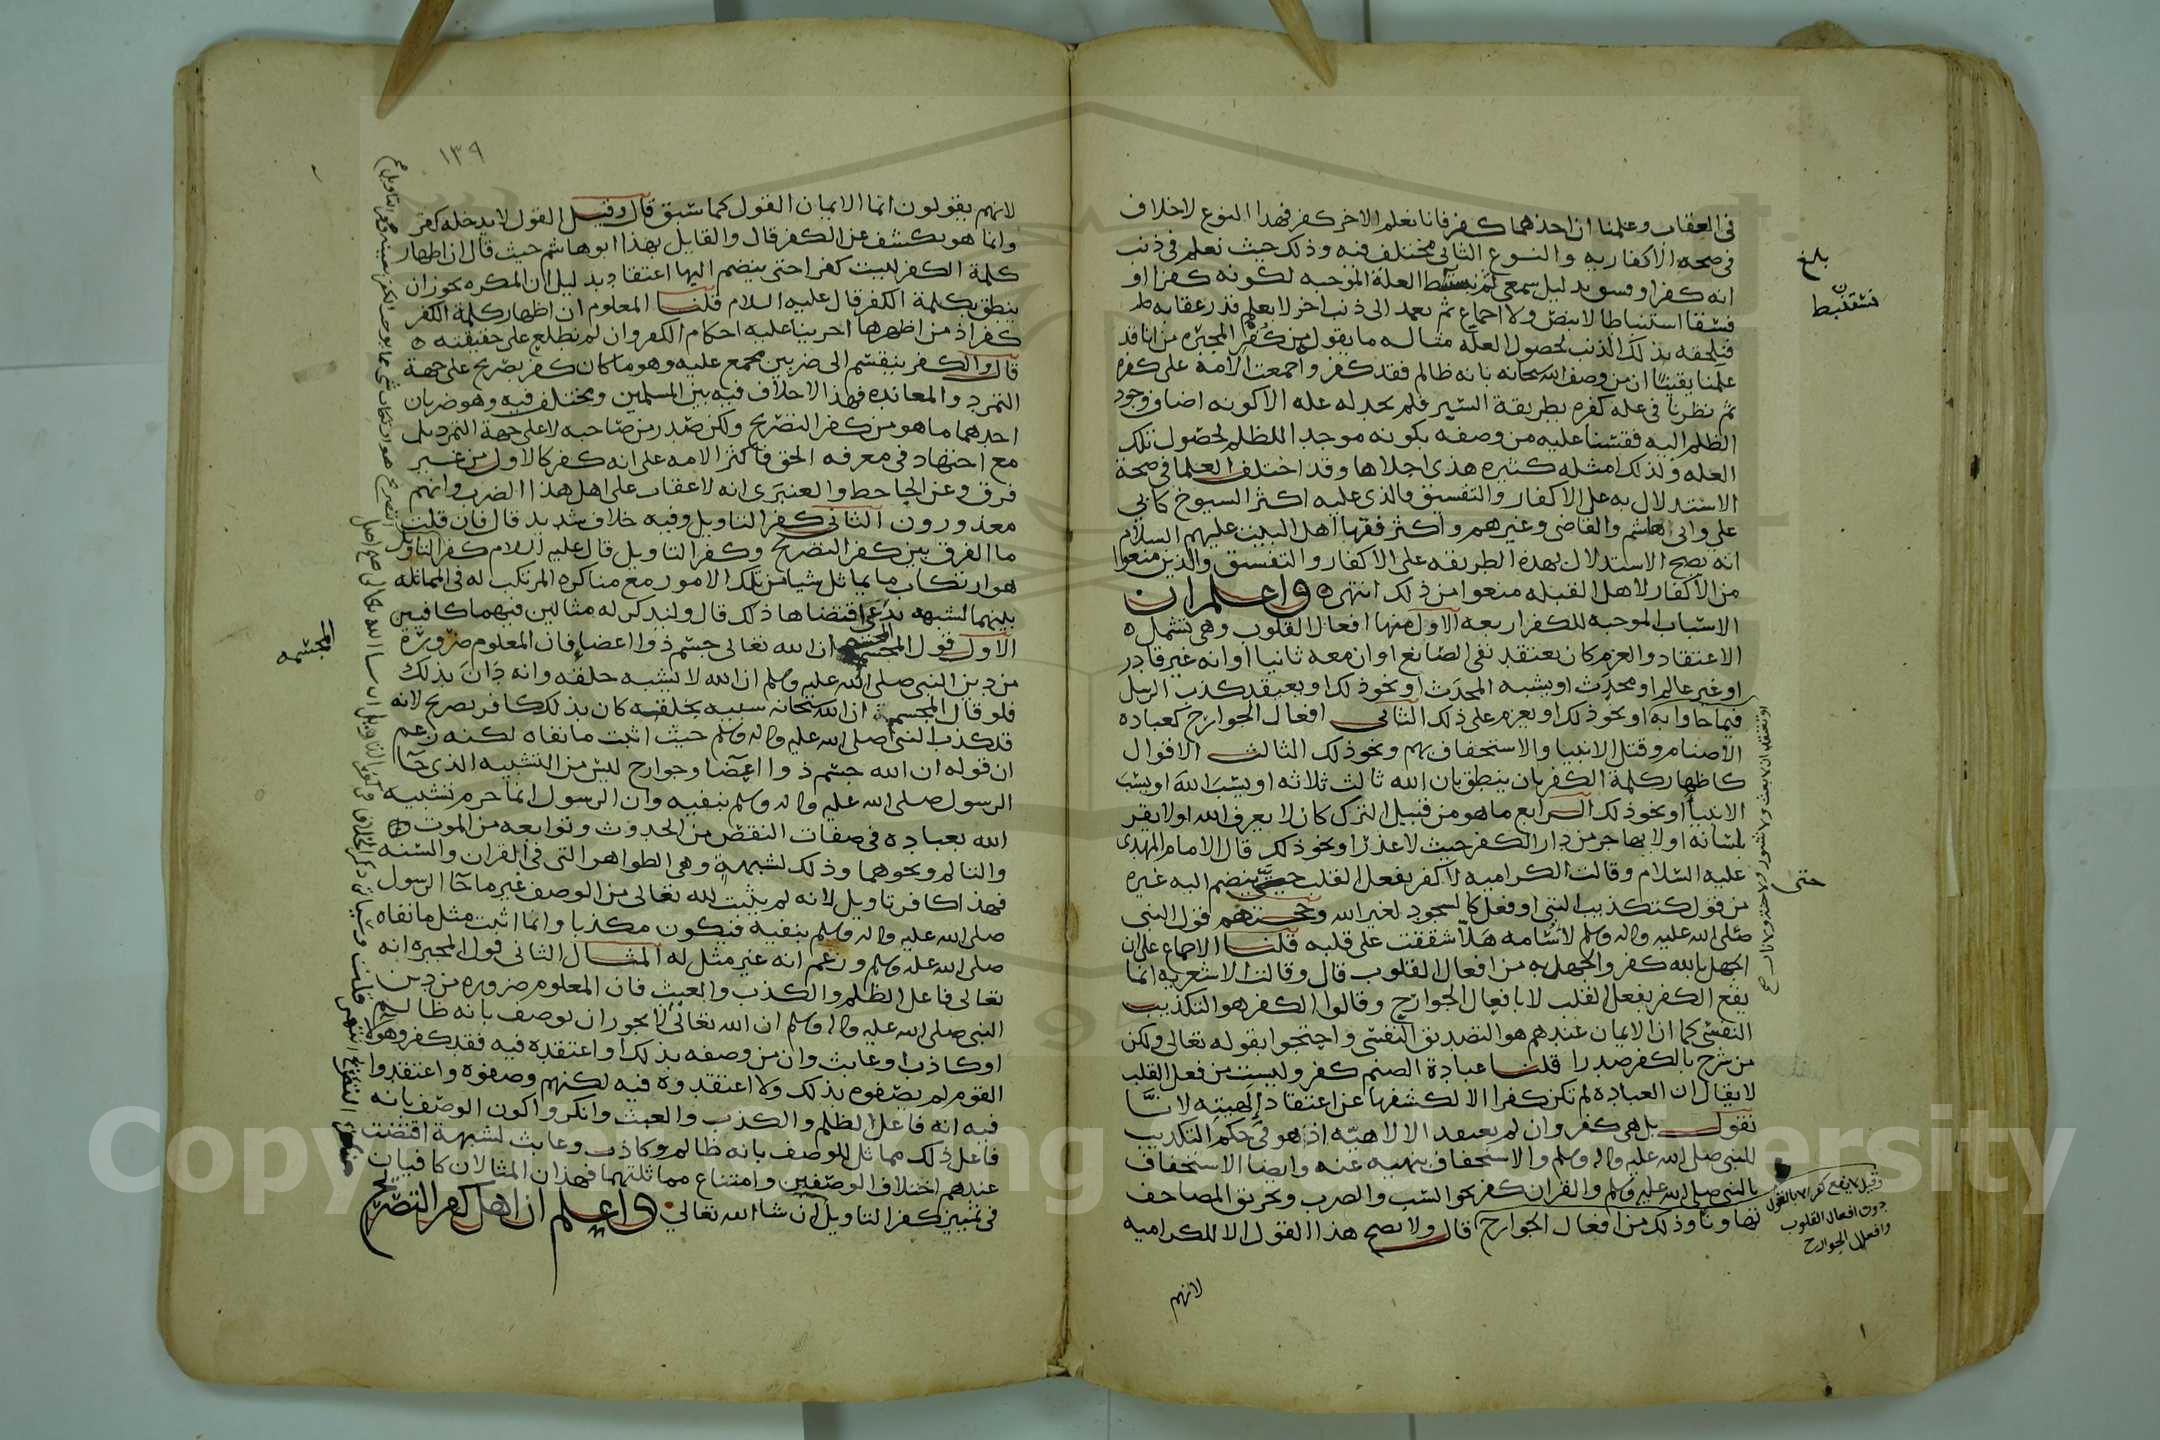 في العقاب وعلمنا ان احدهما كفر فانا نعلم الاخر كفر فهذا النوع لا خلاف
في صحه الاكفار به والنوع الثاني مختلف فيه وذلك حيث نعلم في ذنب
انه كفر او فسق بدليل سمعي ثم نستنبط العلة الموجبه لكونه كفرا او
فسقا استنباطا لا بنص ولا اجماع ثم نعمد الى ذنب اخر لا يعلم قدر عقابه
فنلحقه بذلك الذنب لحصول العلة مثاله ما يقول من كفر المجبره من انا قد
علمنا يقينا ان من وصف الله سبحانه بانه ظالم فقد كفر واجمعت الامة على كفره
ثم نظرنا في علة كفره بطريقة السبر فلم نجد له عله الا كونه اضاف وجود
الظلم اليه فقسنا عليه من وصفه بكونه موجدا للظلم لحصول تلك
العله ولذلك امثله كثيره هذي اجلاها وقد اختلف العلما في صحة
الاستدلال به على الاكفار والتفسيق فالذي عليه اكثر الشيوخ كابي
علي وابي هاشم والقاضي وغيرهم واكثر فقها اهل البيت عليهم السلام
انه يصح الاستدلال بهذه الطريقه على الاكفار والتفسيق والذين منعوا
من الاكفار لاهل القبله منعوا من ذلك انتهى واعلم ان
الاسباب الموجبه للكفر اربعه الاول منها افعال القلوب وهي تشمل
الاعتقاد والعزم كان يعتقد نفي الصانع او ان معه ثانيا او انه غير قادر
او غير عالم او محدث او يشبه المحدث او نحو ذلك او يعتقد كذب الرسل
فيما جاوا به او نحو ذلك او يعزم على ذلك الثاني افعال الجوارح كعباده
الاصنام وقتل الانبيا والاستخفاف بهم ونحو ذلك الثالث الاقوال
كاظهار كلمة الكفر بان ينطق بان الله ثالث ثلاثه او يسب الله او يسب
الانبيا او نحو ذلك الرابع ما هو من قبيل الترك كان لا يعرف الله او لا يقر
بلسانه او لا يهاجر من دار الكفر حيث لا عذر او نحو ذلك قال الامام المهدي
عليه السلام وقالت الكراميه لا كفر بفعل القلب حتى ينضم اليه غيره
من قول كتكذيب النبي او فعل كالسجود لغير الله وحجتهم قول النبي
صلى الله عليه واله وسلم لاسامه هلا شققت على قلبه قلنا الاجماع على ان
الجهل بالله كفر والجهل به من افعال القلوب قال وقالت الاشعريه انما
يقع الكفر بفعل القلب لا بافعال الجوارح وقالوا الكفر هو التكذيب
النفسي كما ان الايمان عندهم هو التصديق النفسي واحتجوا بقوله تعالى ولكن
من شرح بالكفر صدرا قلنا عبادة الصنم كفر وليست من فعل القلب
لا يقال ان العباده لم تكن كفرا الا لكشفها عن اعتقاد الهيته لانا
نقول بل هي كفر وان لم يعتقد الالاهيه اذ هو في حكم التكذيب
للنبي صلى الله عليه واله وسلم والاستخفاف بنهيه عنه وايضا الاستخفاف
بالنبي صلى الله عليه وسلم والقران كفر نحو السب والضرب وتحريق المصاحف
تهاونا وذلك من افعال الجوارح قال ولا يصح هذا القول الا للكراميه
لانهم
بلغ
فستنبط
حتى
وقيل لا يقع كفر الا بالقول
دون افعال القلوب
وافعال الجوارح
١٣٩
لانهم يقولون انما الايمان القول كما سبق قال وقيل القول لا يدخله كفر
وانما هو يكشف عن الكفر قال والقايل بهذا ابو هاشم حيث قال ان اظهار
كلمة الكفر ليست كفرا حتى ينضم اليها اعتقاد بدليل ان المكره يجوز ان
ينطق بكلمة الكفر قال عليه السلام قلنا المعلوم ان اظهار كلمة الكفر
كفر اذ من اظهرها اجرينا عليه احكام الكفر وان لم نطلع على حقيقته
قال والكفر ينقسم الى ضربين مجمع عليه وهو ما كان كفر تصريح على جهة
التمرد والمعانده فهذا لا خلاف فيه بين المسلمين ومختلف فيه وهو ضربان
احدهما ما هو من كفر التصريح ولكن صدر من صاحبه لا على جهة التمرد بل
مع اجتهاد في معرفه الحق فاكثر الامه على انه كفر كالاول من غير
فرق وعن الجاحظ والعنبري انه لا عقاب على اهل هذا الضرب وانهم
معذورون الثاني كفر التاويل وفيه خلاف شديد قال فان قلت
ما الفرق بين كفر التصريح وكفر التاويل قال عليه السلام كفر التاويل
هو ارتكاب ما يماثل شيا من تلك الامور مع مناكره المرتكب له في المماثله
بينهما لشبهه يدعي اقتضاها ذلك قال ولنذكر له مثالين فيهما كافيين
الاول قول المجسمه ان الله تعالى جسم ذو اعضا فان المعلوم ضرورة
من دين النبي صلى الله عليه وسلم ان الله لا يشبه خلقه وانه دان بذلك
فلو قال المجسمة ان الله سبحانه شبيه بخلقه كان بذلك كافر تصريح لانه
قد كذب النبي صلى الله عليه واله وسلم حيث اثبت ما نفاه لكنه زعم
ان قوله ان الله جسم ذو اعضا وجوارح ليس من التشبيه الذي جا
الرسول صلى الله عليه واله وسلم بنفيه وان الرسول انما حرم تشبيه
الله بعباده في صفات النقص من الحدوث وتوابعه من الموت
والتالم ونحوهما وذلك لشبهة وهي الظواهر التي في القران والسنه
فهذا كافر تاويل لانه لم يثبت لله تعالى من الوصف غير ما جا الرسول
صلى الله عليه واله وسلم بنفيه فيكون مكذبا وانما اثبت مثل ما نفاه
صلى الله عليه وسلم وزعم انه غير مثل له المثال الثاني قول المجبره انه
تعالى فاعل الظلم والكذب والعبث فان المعلوم ضروره من دين
النبي صلى الله عليه واله وسلم ان الله تعالى لا يجوز ان يوصف بانه ظالم
او كاذب او عابث وان من وصفه بذلك او اعتقده فيه فقد كفر وهولا
القوم لم يصفوه بذلك ولا اعتقدوه فيه لكنهم وصفوه واعتقدوا
فيه انه فاعل الظلم والكذب والعبث وانكروا كون الوصف بانه
فاعل ذلك مماثل للوصف بانه ظالم وكاذب وعابث لشبهة اقتضت
عندهم اختلاف الوصفين وامتناع مماثلتهما فهذان المثالان كافيان
في تمييز كفر التاويل ان شا الله تعالى واعلم ان اهل كفر التصريح
المجسمه